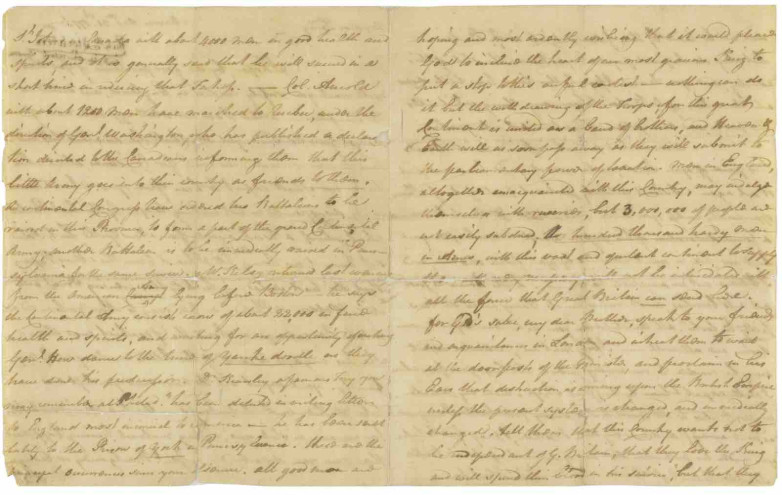 St Johns in Canada with about 4000 men in good health and
spirits, and it is generally said that he will succeed in a
short time in reducing that Fortress. — Col. Arnold
with about 1200 men have marched to Quebec under the
direction of Genl Washington, who has published a declara
tion directed to the Canadians informing them that this
little Army goes into their country as friends to them.
The continental Congress have ordered two Battalions to be
raised in this Province, to form a part of the grand Continental
Army; another Battalion is to be immediately raised in Penn
sylvania for the same service. returned last
from the American Camp lying before Boston he says
the continental Army consists of about 22,000 in good
health and spirits, and waiting for an opportunity of making
Genl Howe dance to the tune of Yankee doodle as they
have done his predecessor. Dr Kearsley
may remember at Philada has been detected in writing letters
to England most inimical to
to the of he has been sent
These are the
principal occurrences since your all good men are
hoping and most ardently wishing that it would please
God to incline the heart of our most gracious King to
put a stop to this awful contest — nothing can do
it but the withdrawing of the troops, for this great
Continent is united as a band of brothers, and Heaven &
Earth will as soon pass away as they will submit to
the parliamentary power of taxation. Men in England,
altogether unacquainted with this Country, may indulge
themselves with reveries, but 3,000,000 of people are
not easily subdued, hundred thousand hardy men
in Arms, with this vast and opulent continent to supply
not be intimidated with
all the force that Great Britain can send here.
for God's sake, my dear Brother, speak to your friends
and acquaintance in London and intreat them to wait
at the door posts of the Minister and proclaim in his
Ears that destruction is coming upon the British Empire
unless the present system is changed, and immediately
changed. tell them that this Country wants not to
be independent of G. Britain, that they love the King
and will spend their blood in his service, but that they